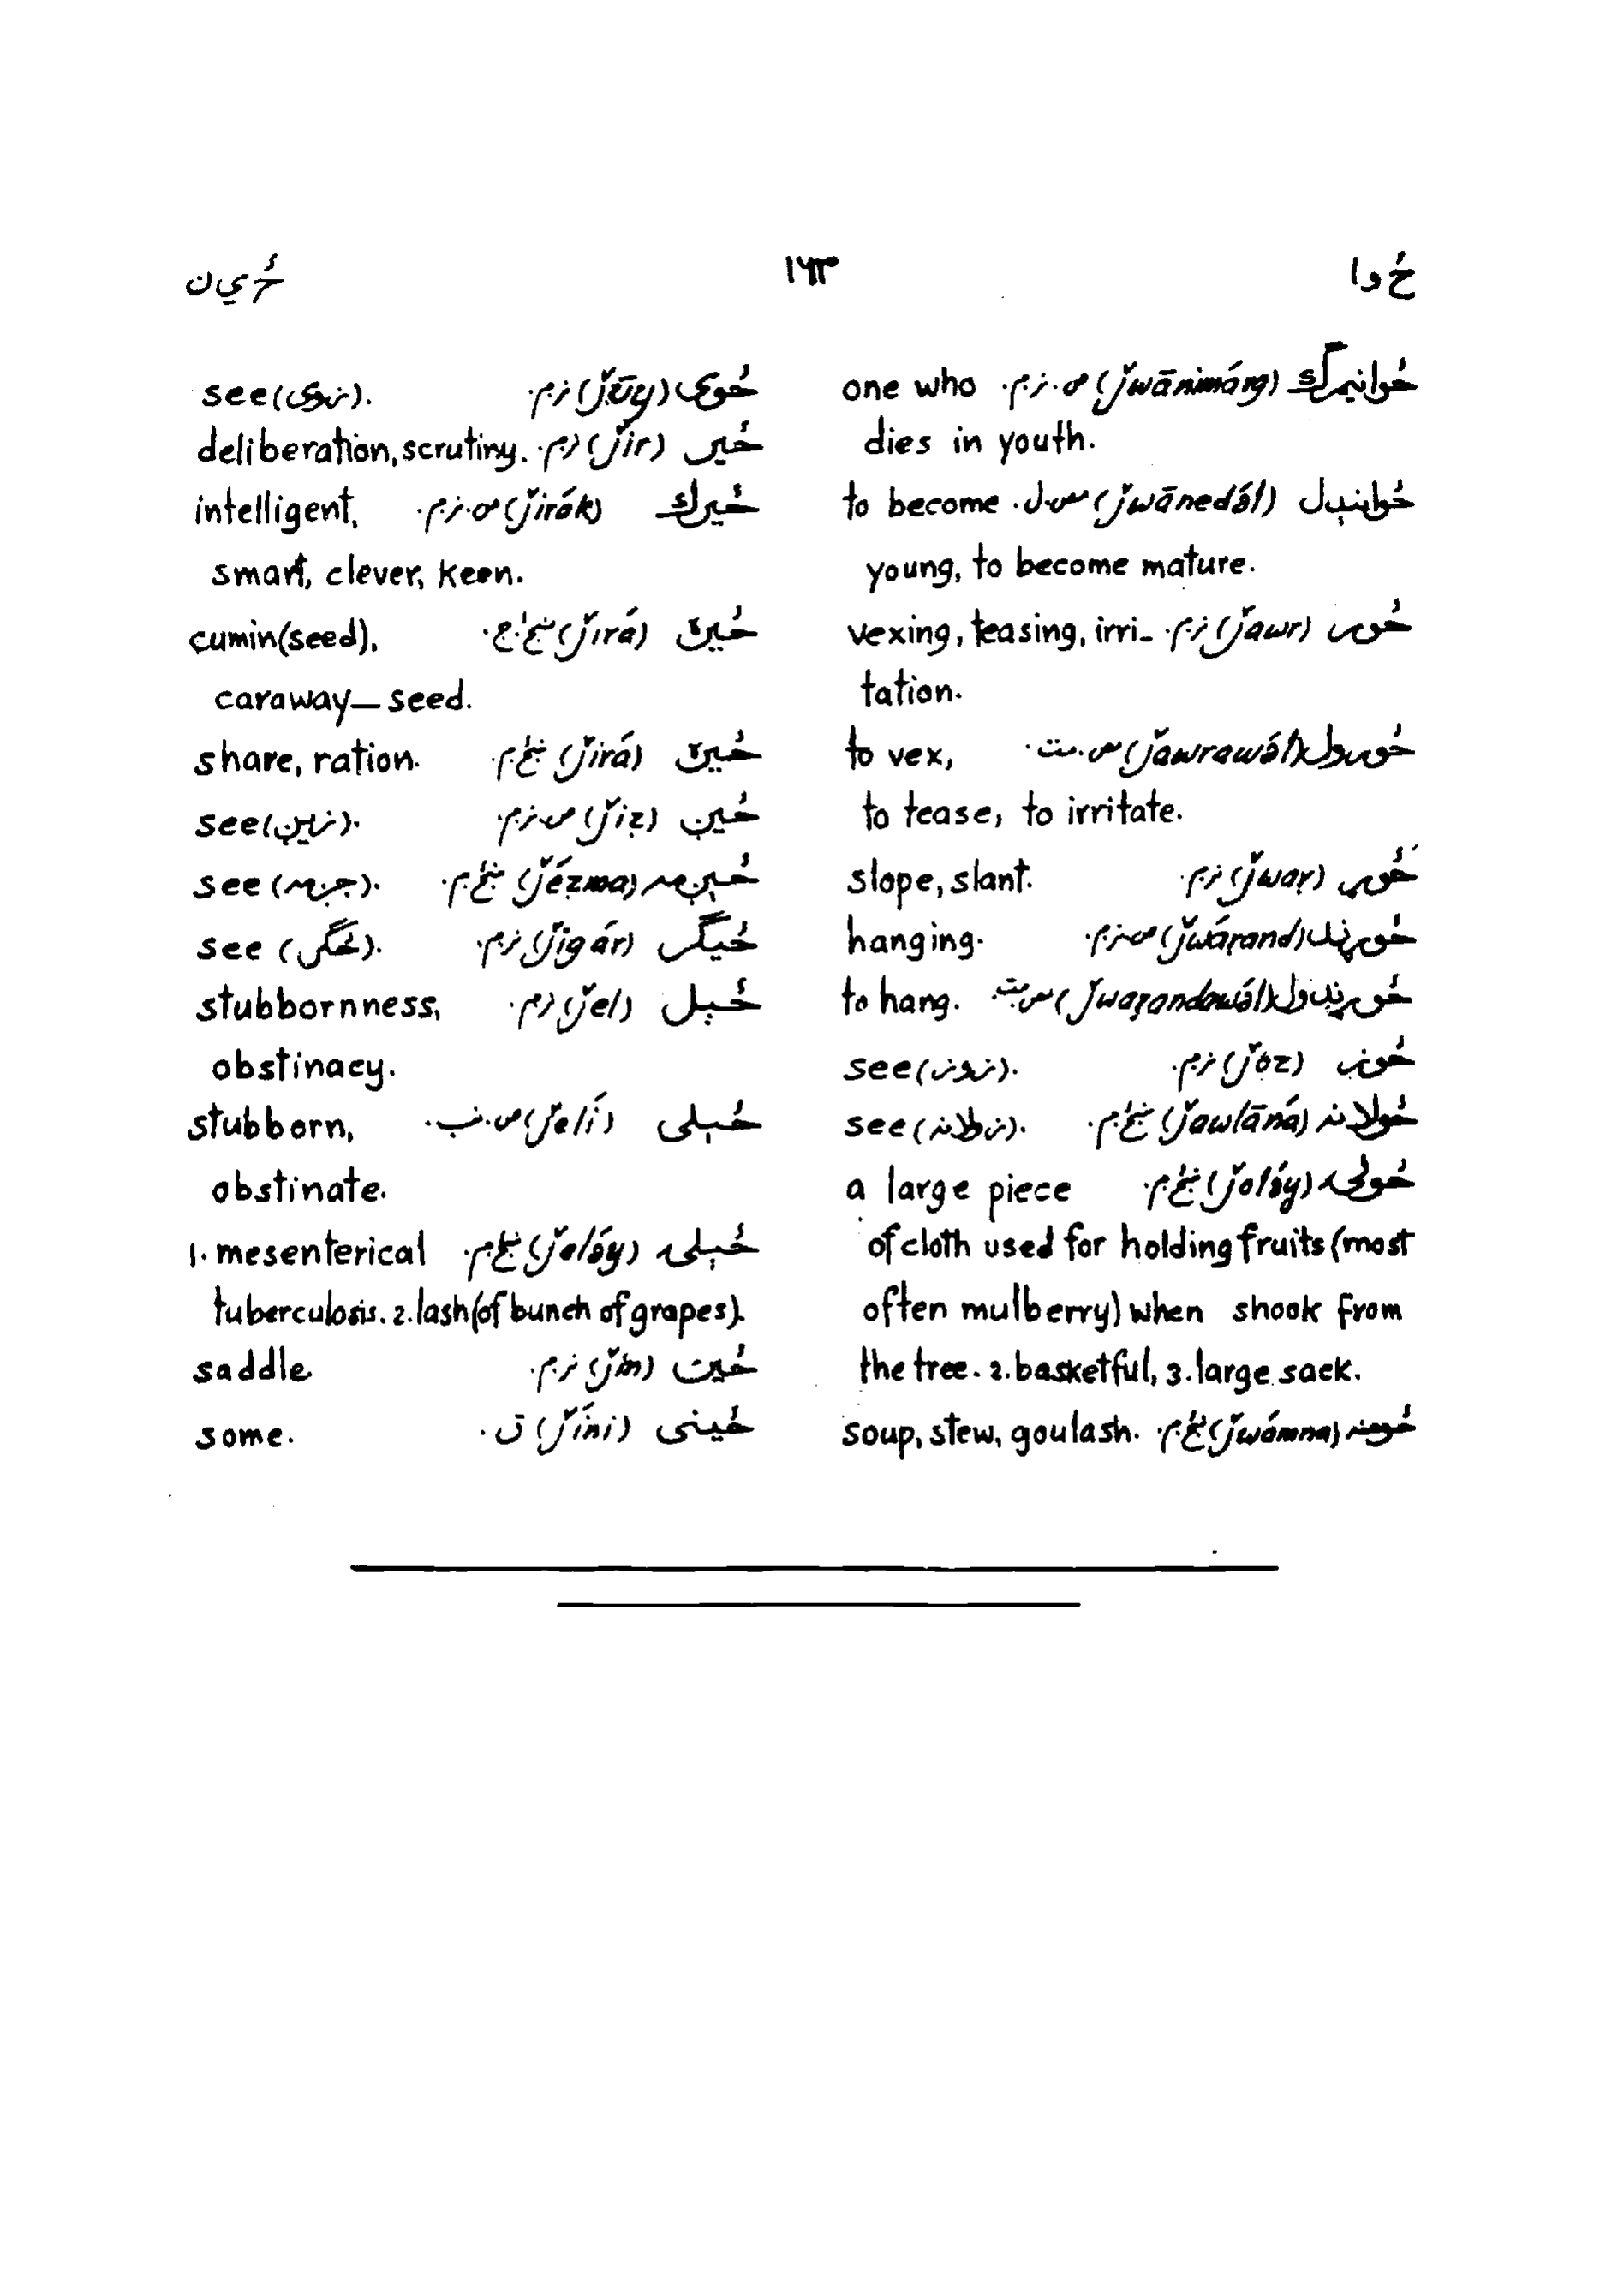 ځ وا ۱۶۳ ځ ي ن
ځوانیمرګ (ǰwānimárg) ص. ز. م. one who
dies in youth.
ځوانېدل (ǰwānedə́l) to become
young, to become mature.
ځور (ǰawr) ز. م. vexing, teasing, irri-
tation.
ځورول (ǰawrawə́l) to vex,
to tease, to irritate.
ځوړ (ǰwaṛ) ز. م. slope, slant.
ځوړند (ǰwáṛand) ص. ز. م. hanging.
ځوړندول (ǰwaṛandawə́l) to hang.
ځوز (ǰoz) ز. م. see (زوز).
ځولانه (ǰawlāná) see (زولانه).
ځولۍ (ǰolə́y) a large piece
of cloth used for holding fruits (most
often mulberry) when shook from
the tree. 2. basketful, 3. large sack.
(ǰwámna) soup, stew, goulash.
ځوی (ǰūy) ز. م. see (زوی).
ځیر (ǰir) ز. م. deliberation, scrutiny.
ځیرک (ǰirák) ص. ز. م. intelligent,
smart, clever, keen.
ځیره (ǰirá) cumin (seed),
caraway-seed.
ځیره (ǰirá) share, ration.
ځیږ (ǰiẓ) ص. ز. م. see (زیږ).
(ǰézma) see
ځیګر (ǰigár) ز. م. see (ځګر).
ځېل (ǰel) ز. م. stubbornness,
obstinacy.
ځېلی (ǰelí) stubborn,
obstinate.
ځېلۍ (ǰelə́y) 1. mesenterical
tuberculosis. 2. lash (of bunch of grapes).
ځین (ǰin) ز. م. saddle.
ځینی (ǰíni) ق. some.